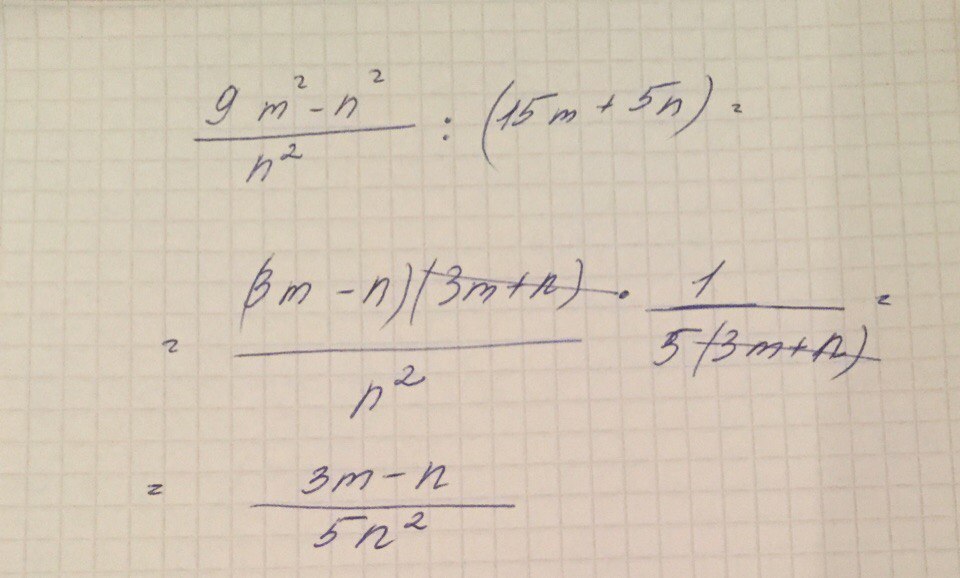 9m² - n² / n² : (15m + 5n) =
= (3m - n)(3m + n) / n² · 1 / 5(3m + n) =
= 3m - n / 5n²